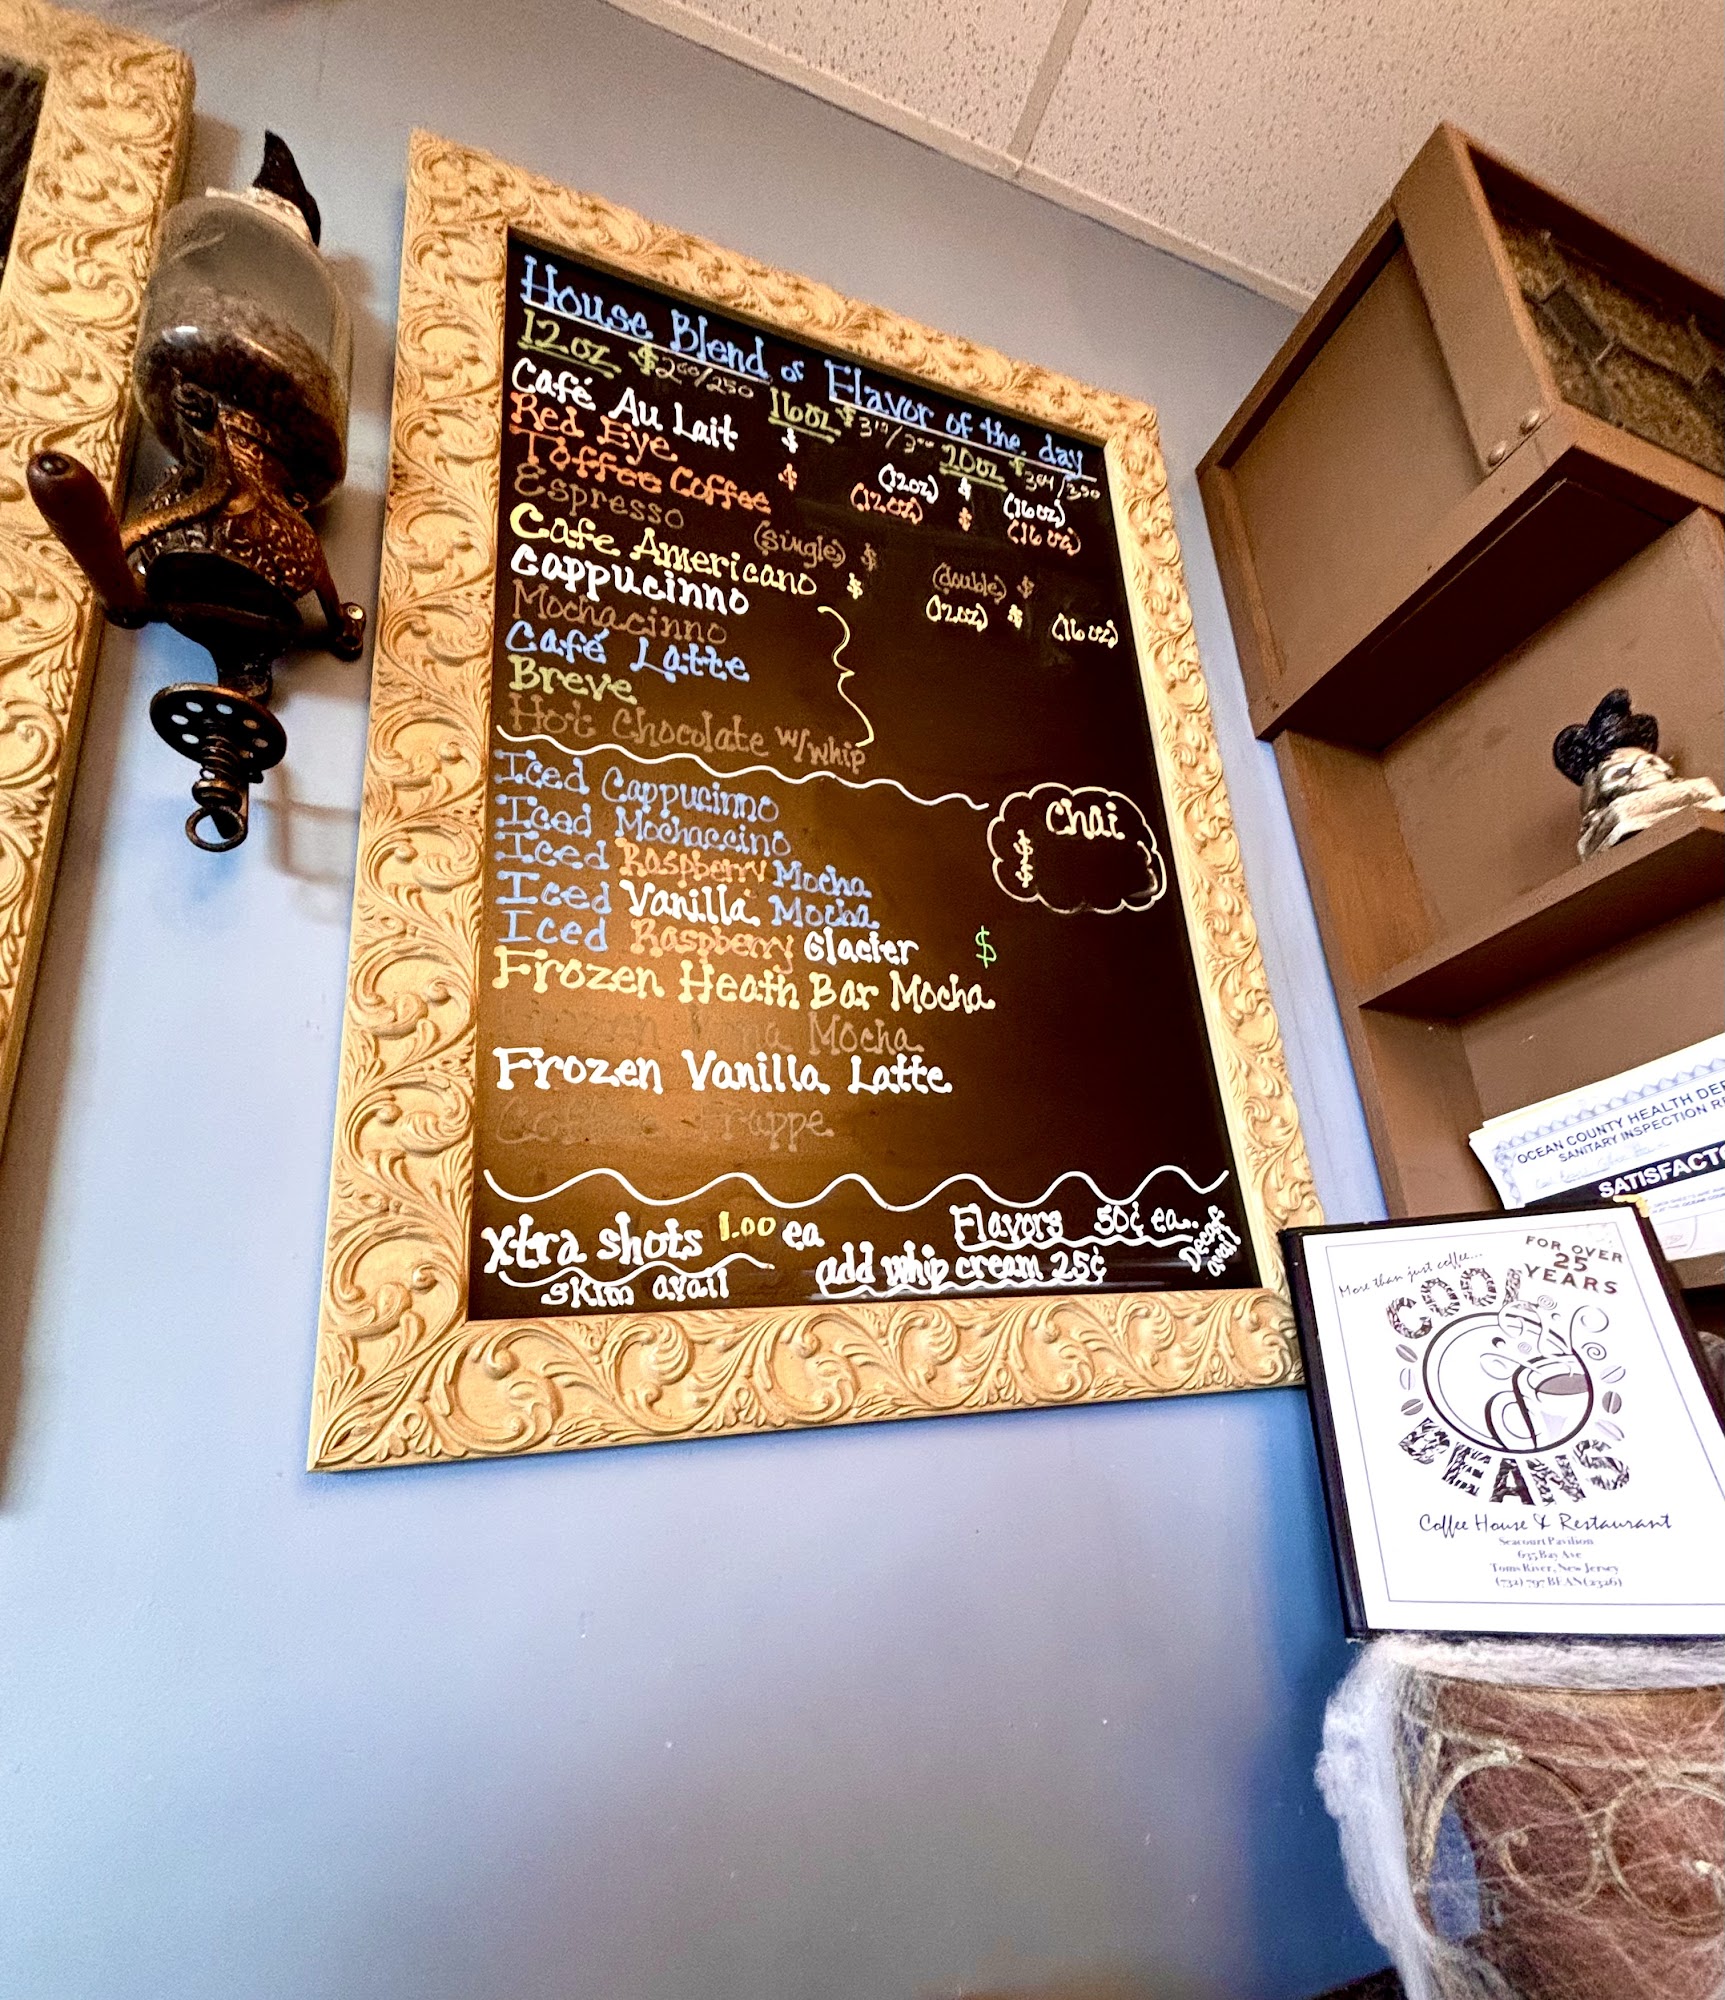 House Blend or Flavor of the day
12oz $2⁰⁰/2⁵⁰ 16oz $ 20oz $
Café Au Lait $ (12oz) $ (16oz)
Red Eye $ (12oz) $ (16oz)
Toffee Coffee
Espresso (single) $ (double) $
Cafe Americano $ (12oz) $ (16oz)
Cappucinno
Mochacinno
Café Latte
Breve
Hot Chocolate w/whip
Iced Cappucinno
Iced Mochaccino
Iced Raspberry Mocha
Iced Vanilla Mocha
Iced Raspberry Glacier $
Frozen Heath Bar Mocha
Frozen Mocha
Frozen Vanilla Latte
Frappe
Chai
$
$
Xtra shots 1.00 ea
skim avail
Flavors 50¢ ea.
add whip cream 25¢
Decaf avail
OCEAN COUNTY HEALTH DEP
SANITARY INSPECTION RE
SATISFACTO
More than just coffee...
FOR OVER
25
YEARS
COOL
BEANS
Coffee House & Restaurant
Seacourt Pavilion
635 Bay Ave
Toms River, New Jersey
(732) 797 BEAN(2326)